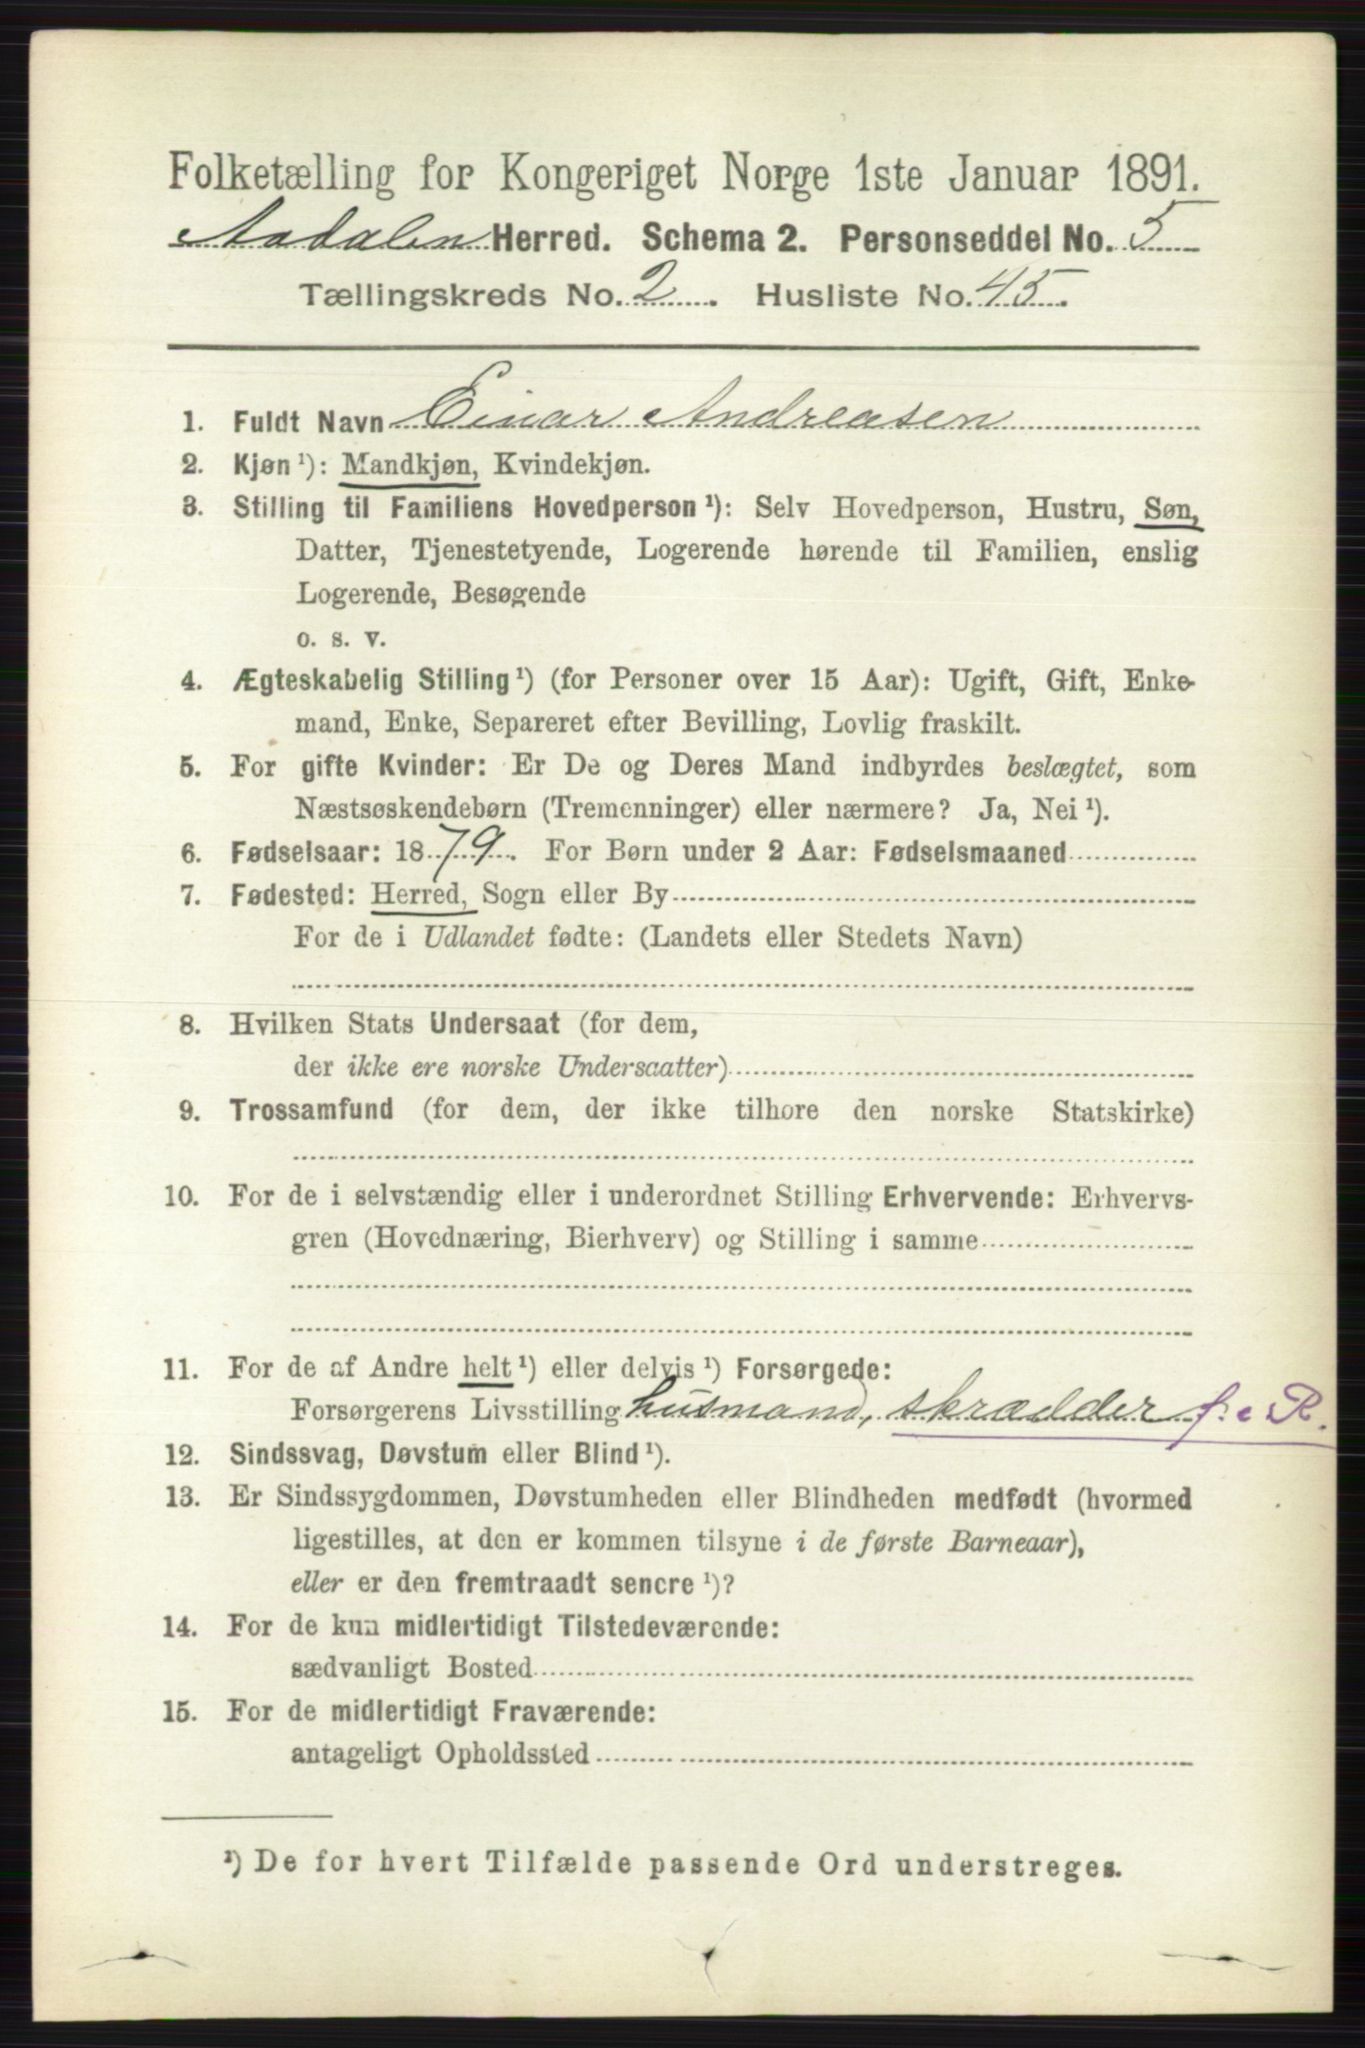 Folketælling for Kongeriget Norge 1ste Januar 1891.
Aadalen Herred. Schema 2. Personseddel No. 5
Tællingskreds No. 2. Husliste No. 45.
1. Fuldt Navn Einar Andreasen
2. Kjøn ¹): Mandkjøn, Kvindekjøn.
3. Stilling til Familiens Hovedperson ¹): Selv Hovedperson, Hustru, Søn,
Datter, Tjenestetyende, Logerende hørende til Familien, enslig
Logerende, Besøgende
o. s. v.
4. Ægteskabelig Stilling ¹) (for Personer over 15 Aar): Ugift, Gift, Enke-
mand, Enke, Separeret efter Bevilling, Lovlig fraskilt.
5. For gifte Kvinder: Er De og Deres Mand indbyrdes beslægtet, som
Næstsøskendebørn (Tremenninger) eller nærmere? Ja, Nei ¹).
6. Fødselsaar: 1879. For Børn under 2 Aar: Fødselsmaaned
7. Fødested: Herred, Sogn eller By
For de i Udlandet fødte: (Landets eller Stedets Navn)
8. Hvilken Stats Undersaat (for dem,
der ikke ere norske Undersaatter)
9. Trossamfund (for dem, der ikke tilhøre den norske Statskirke)
10. For de i selvstændig eller i underordnet Stilling Erhvervende: Erhvervs-
gren (Hovednæring, Bierhverv) og Stilling i samme
11. For de af Andre helt ¹) eller delvis ¹) Forsørgede:
Forsørgerens Livsstilling husmand, skrædder f. e R.
12. Sindssvag, Døvstum eller Blind ¹).
13. Er Sindssygdommen, Døvstumheden eller Blindheden medfødt (hvormed
ligestilles, at den er kommen tilsyne i de første Barneaar),
eller er den fremtraadt senere ¹)?
14. For de kun midlertidigt Tilstedeværende:
sædvanligt Bosted
15. For de midlertidigt Fraværende:
antageligt Opholdssted
¹) De for hvert Tilfælde passende Ord understreges.